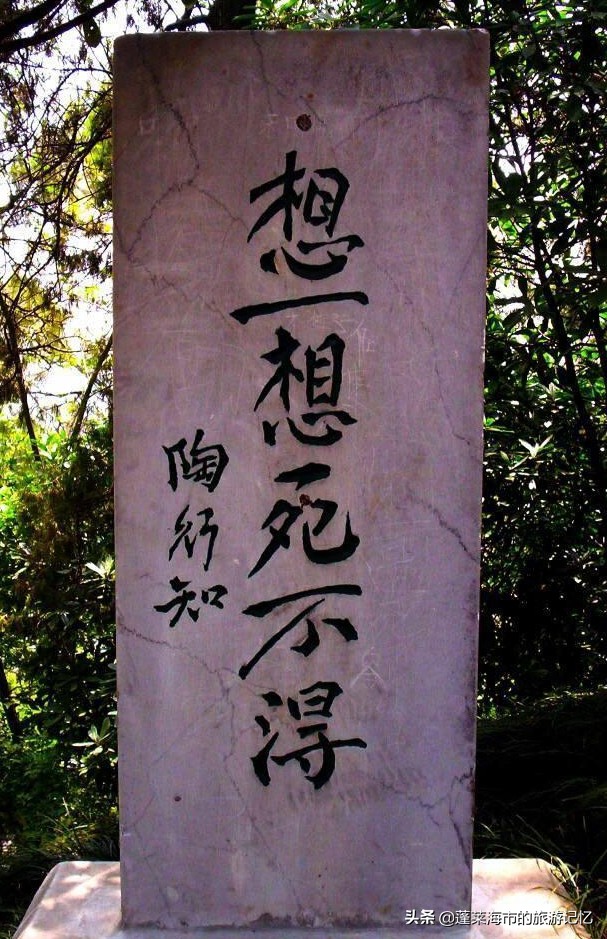 想一想死不得
陶行知
头条 @蓬莱海市的旅游记忆